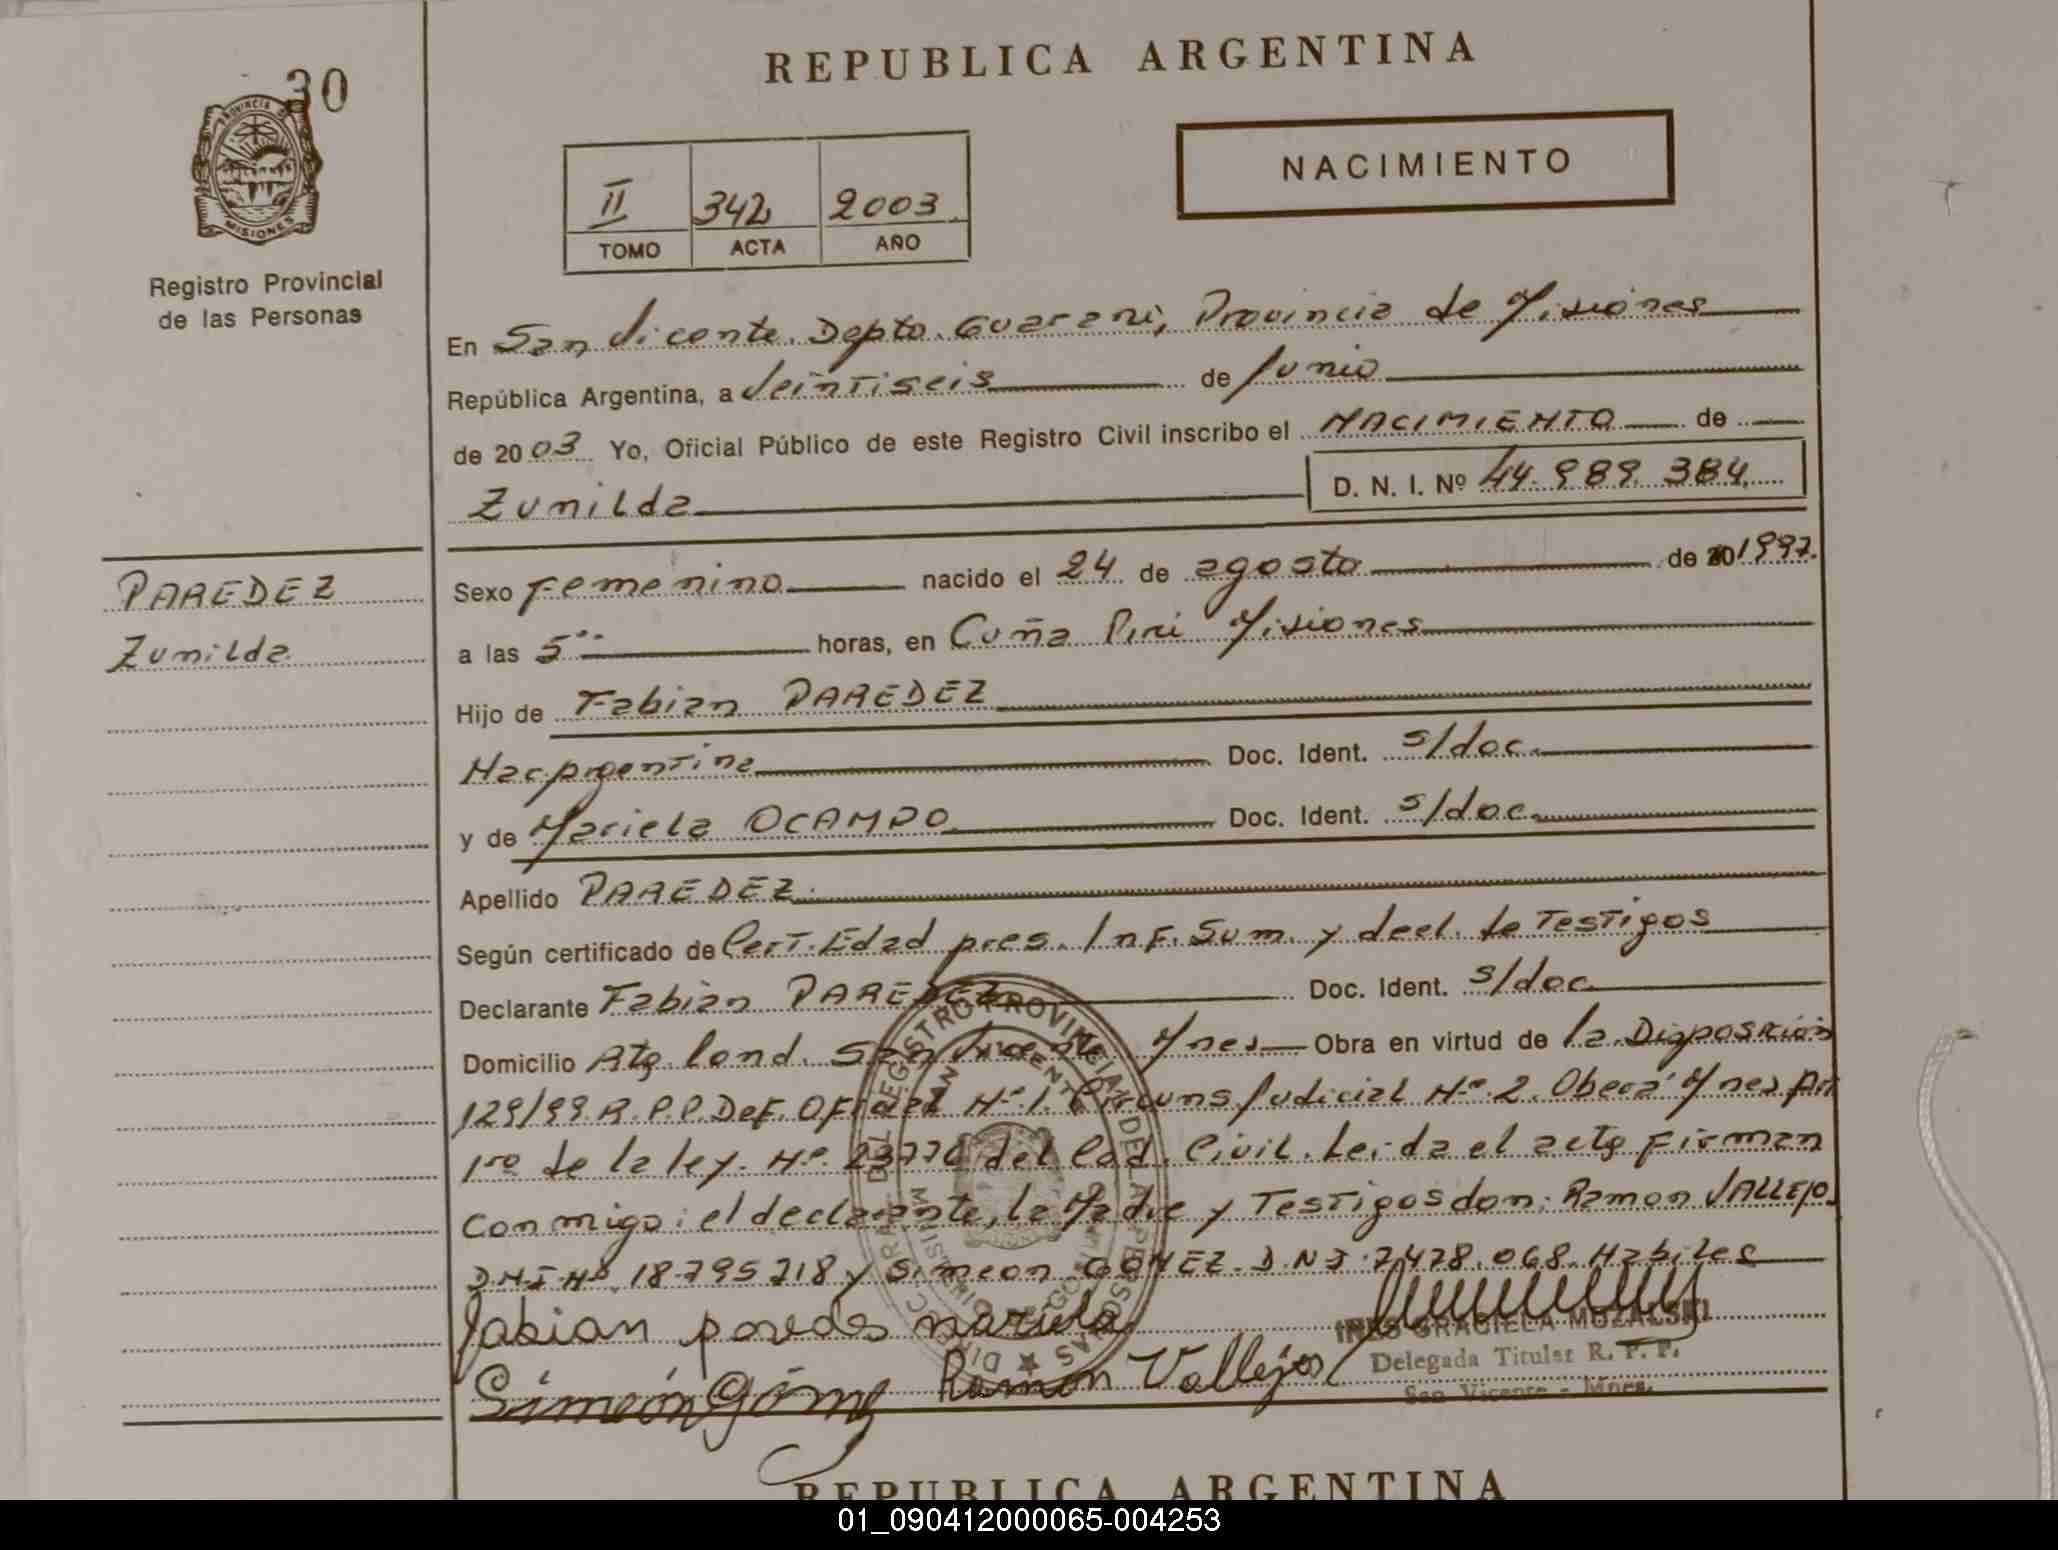 REPUBLICA ARGENTINA
30
PROVINCIA DE
MISIONES
Registro Provincial
de las Personas
NACIMIENTO
II 342 2003
TOMO ACTA AÑO
En San Vicente. Depto. Guarani, Provincia de Misiones
República Argentina, a Veintiseis de Junio
de 2003 Yo, Oficial Público de este Registro Civil inscribo el NACIMIENTO de
Zunilda D. N. I. Nº 44.989.384
PAREDEZ
Zunilda
Sexo Femenino nacido el 24 de agosto de 20 1997.
a las 5 horas, en Cuña Pirú Misiones
Hijo de Fabian PAREDEZ
Nac. argentina Doc. Ident. s/doc.
y de Mariela OCAMPO Doc. Ident. s/doc.
Apellido PAREDEZ
Según certificado de Cert. Edad pres. Inf. Sum. y decl. de Testigos
Declarante Fabian PAREDEZ Doc. Ident. s/doc
Domicilio San Vicente Mnes. Obra en virtud de la Disposición
129/99 R.P.P. Def. Oficial Nº 1. Circuns. Judicial Nº 2. Oberá Mnes. Art
1ro de la ley. Nº 23776 del Cod. Civil. Leida el acta firman
conmigo: el declarante, la Madre y Testigos don: Ramon VALLEJO
D.N.I. Nº 18.795.218 y Simeon GOMEZ. D.N.I. 7.478.068. Habiles
Fabian paredes mariela
INES GRACIELA MOZALSKI
Delegada Titular R. P. P.
San Vicente - Mnes.
Simeón Gómez Ramon Vallejos
REPUBLICA ARGENTINA
01_090412000065-004253